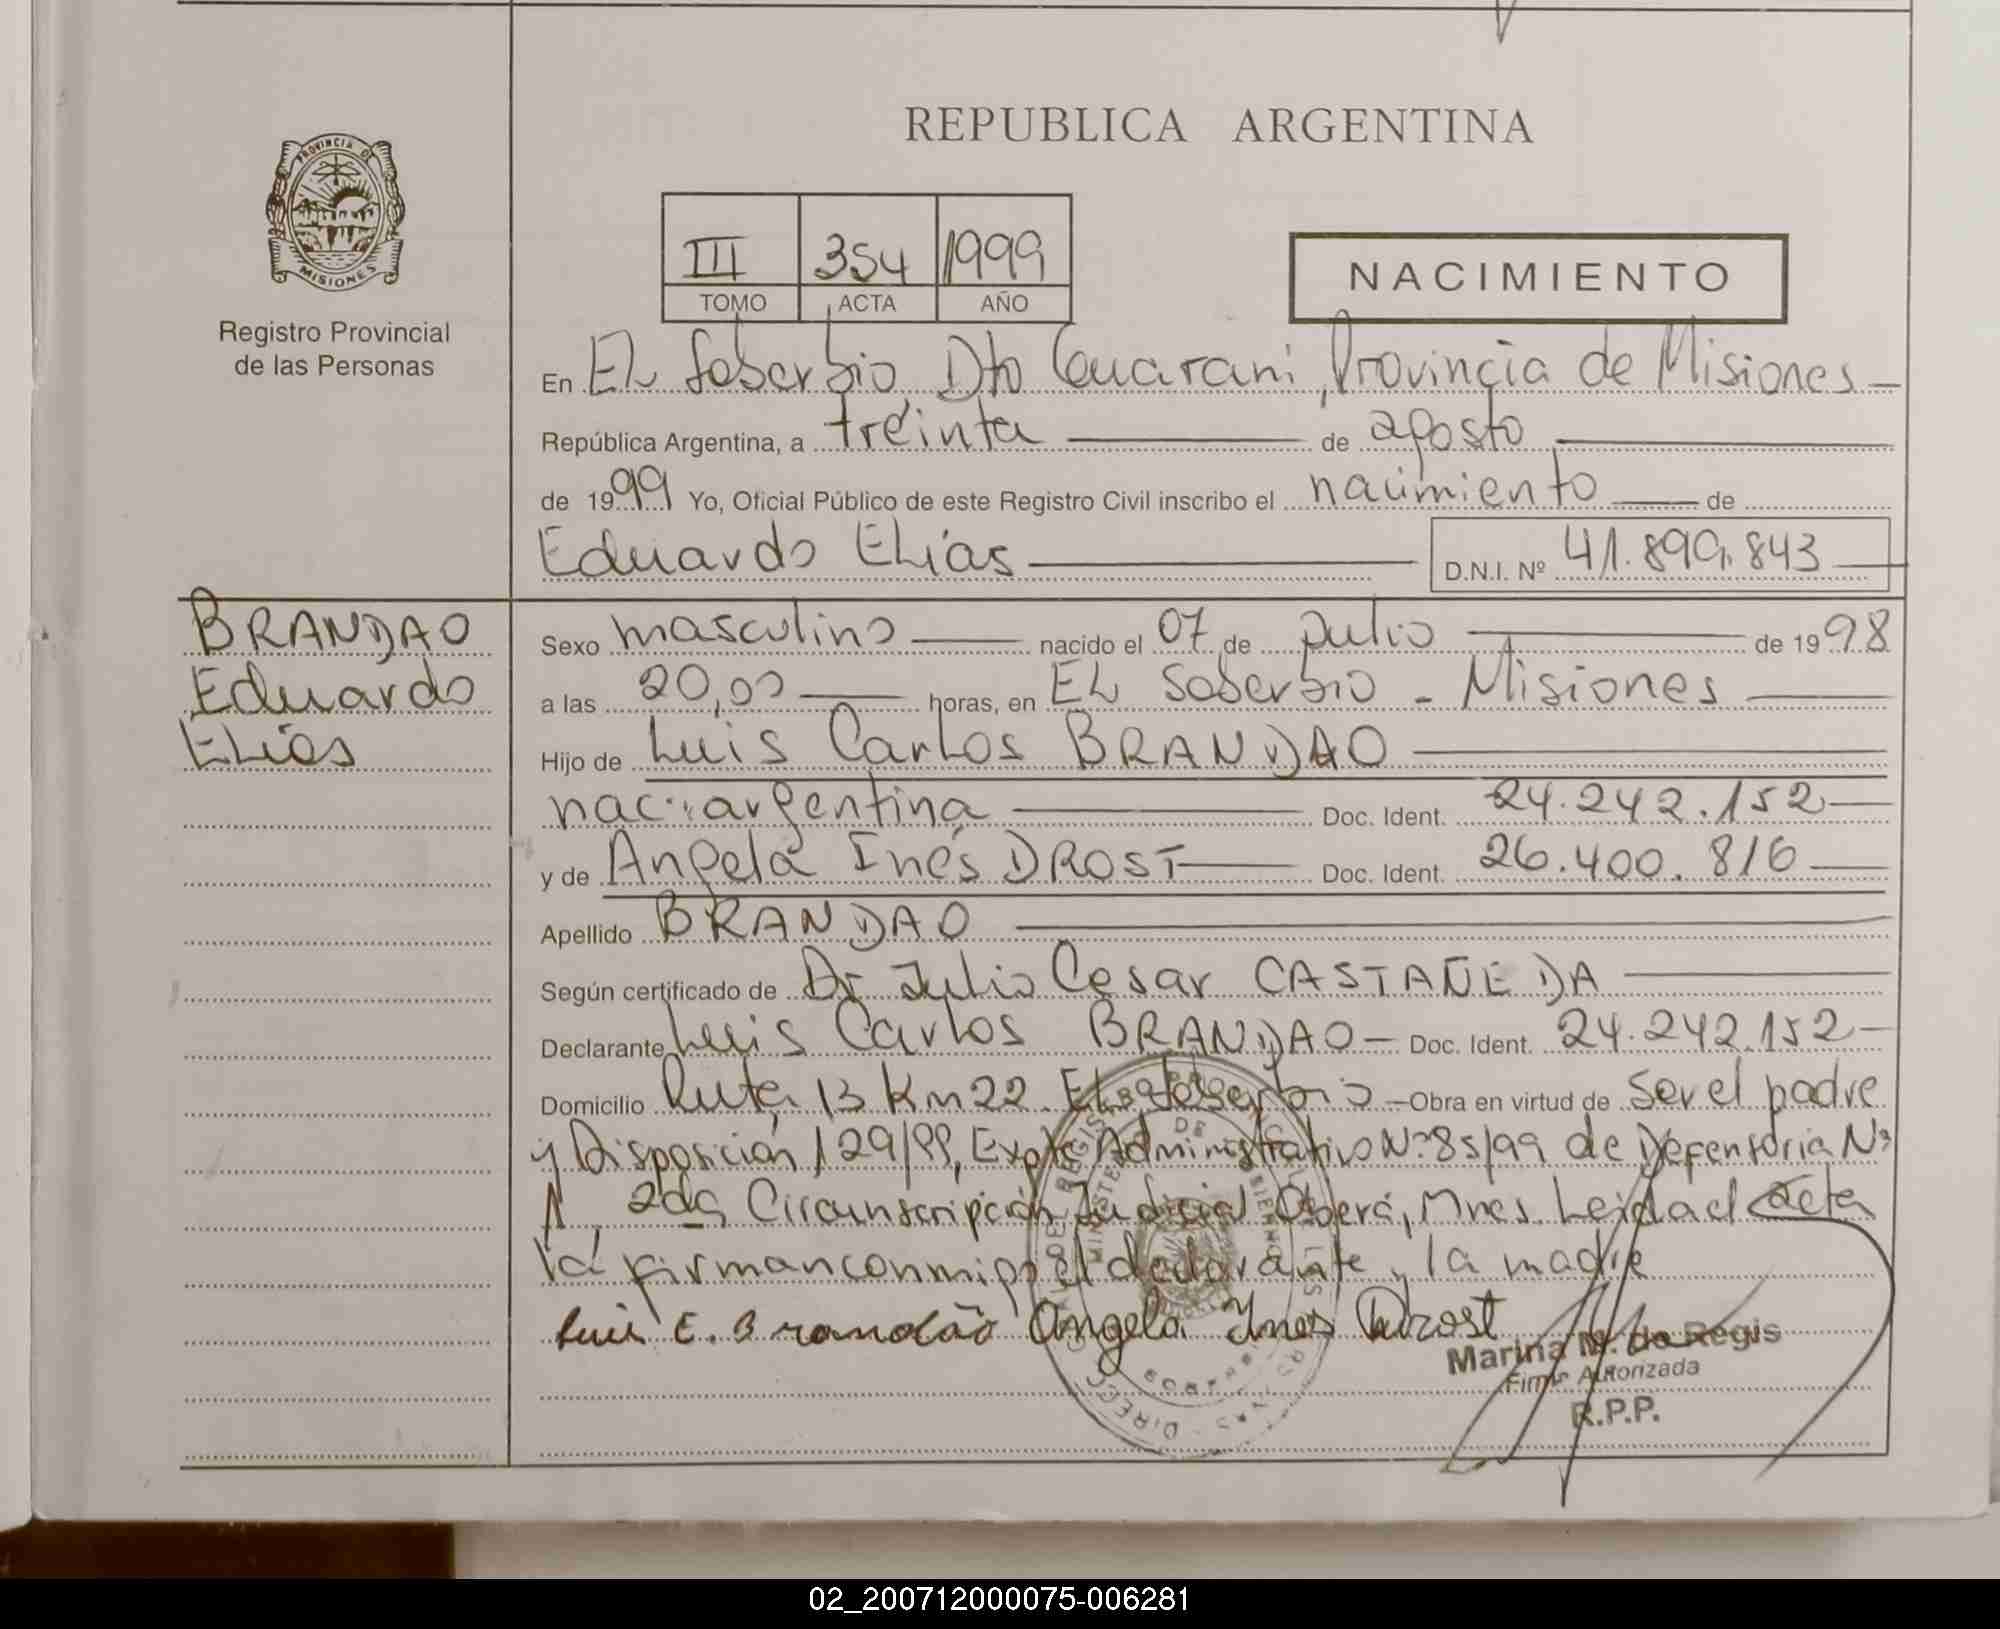 REPUBLICA ARGENTINA
PROVINCIA DE
MISIONES
Registro Provincial
de las Personas
III 354 1999
TOMO ACTA AÑO
NACIMIENTO
En EL Soberbio, Dto Guarani, Provincia de Misiones
República Argentina, a treinta de agosto
de 1999 Yo, Oficial Público de este Registro Civil inscribo el nacimiento de
Eduardo Elías D.N.I. Nº 41.899.843
BRANDAO
Eduardo
Elías
Sexo masculino nacido el 07 de julio de 1998
a las 20,00 horas, en EL Soberbio - Misiones
Hijo de Luis Carlos BRANDAO
nac: argentina Doc. Ident. 24.242.152
y de Angela Inés DROST Doc. Ident. 26.400.816
Apellido BRANDAO
Según certificado de Dr Julio Cesar CASTAÑEDA
Declarante Luis Carlos BRANDAO - Doc. Ident. 24.242.152
Domicilio Ruta 13 Km 22 El Soberbio - Obra en virtud de ser el padre
y Disposición 129/99, Expte Administrativo Nº 85/99 de Defensoria Nº
1, 2da Circunscripción Judicial Oberá, Mnes. Leida el acta
la firman conmigo el declarante y la madre
Luis C. Brandão Angela Ines Drost
Marina M. de Regis
Firma Autorizada
R.P.P.
02_200712000075-006281